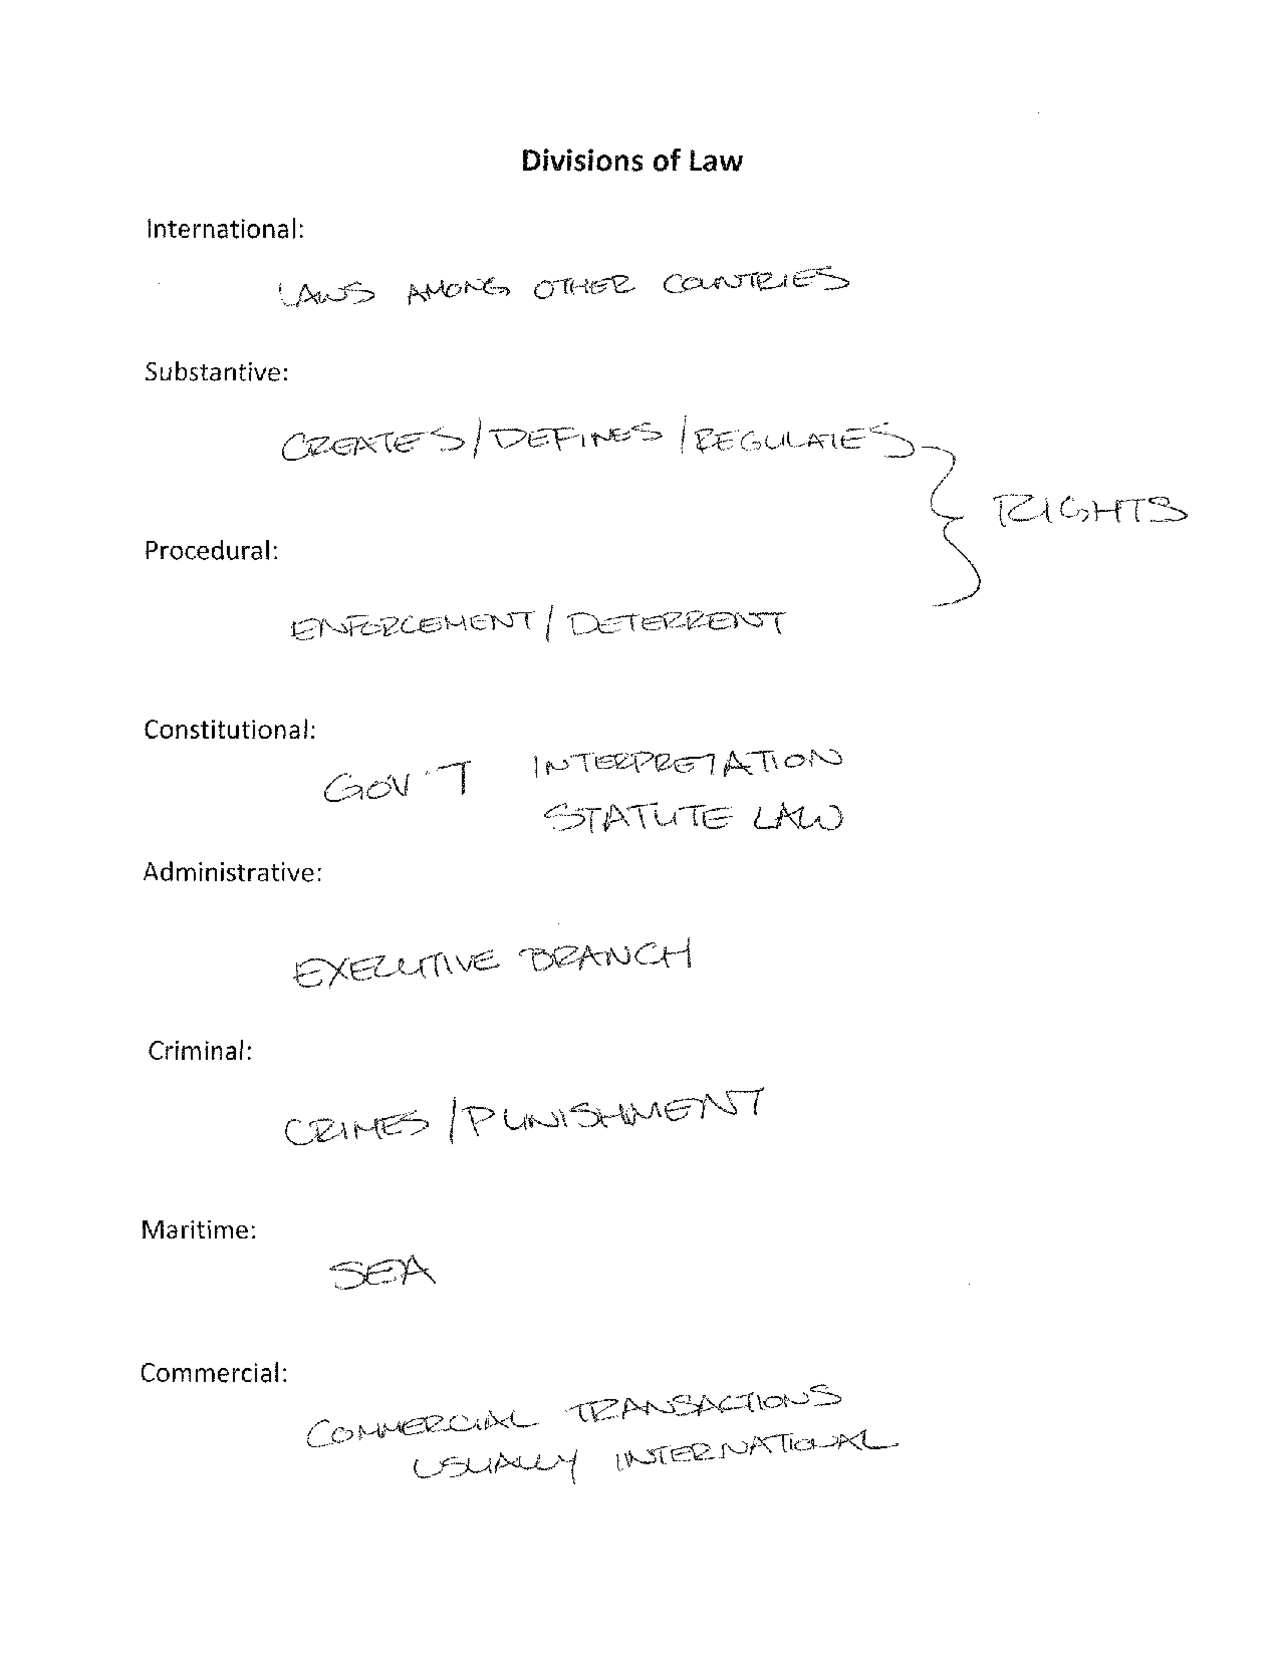 Divisions of Law
International:
LAWS AMONG OTHER COUNTRIES
Substantive:
CREATES/DEFINES/REGULATES
RIGHTS
Procedural:
ENFORCEMENT/DETERRENT
Constitutional:
GOV'T INTERPRETATION
STATUTE LAW
Administrative:
EXECUTIVE BRANCH
Criminal:
CRIMES/PUNISHMENT
Maritime:
SEA
Commercial:
COMMERCIAL TRANSACTIONS
USUALLY INTERNATIONAL